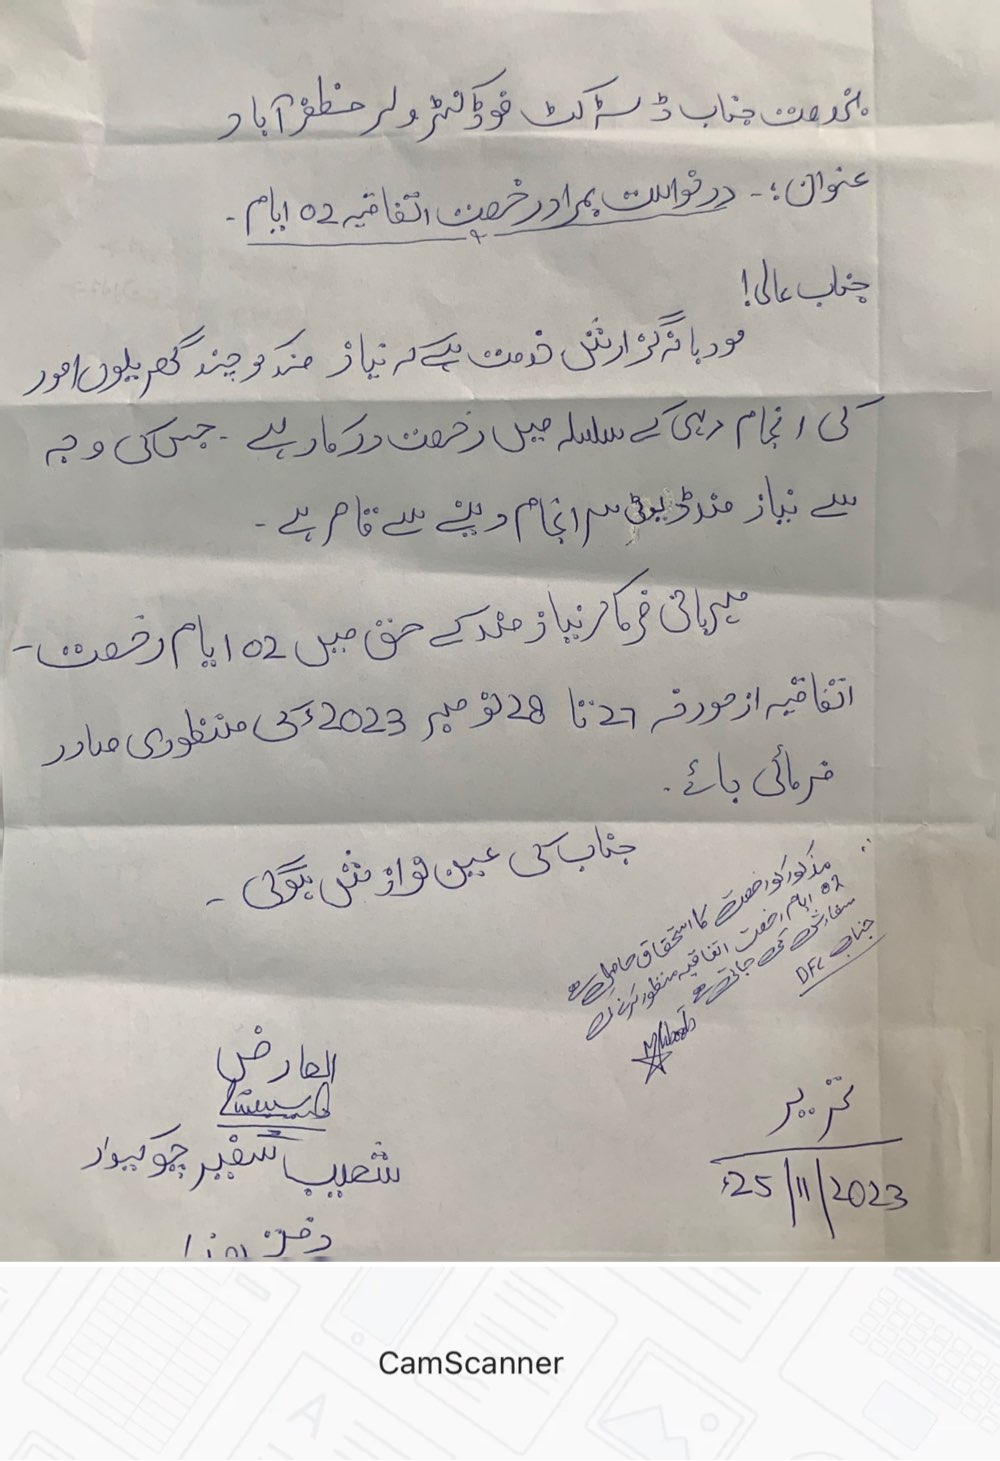 بخدمت جناب ڈسٹرکٹ فوڈ کنٹرولر مظفرآباد
عنوان :۔ درخواست بمراد رخصت اتفاقیہ 02 ایام ۔
جناب عالی!
مودبانہ گزارش خدمت ہے کہ نیاز مند کو چند گھریلوں امور
کی انجام دہی کے سلسلہ میں رخصت درکار ہے ۔ جس کی وجہ
سے نیاز مند ڈیوٹی سرانجام دینے سے قاصر ہے ۔
میربانی فرما کر نیاز مند کے حق میں 02 ایام رخصت
اتفاقیہ از مورخہ 27 تا 28 نومبر 2023ء کی منظوری صادر
فرمائی جائے ۔
جناب کی عین نوازش ہوگی ۔
مذکور کو رخصت کا استحقاق حاصل ہے
02 ایام رخصت اتفاقیہ منظور کرنے کی
سفارش کی جاتی ہے
جناب DFC
العارض
شعیب سفیر چوکیدار
دفتر ہذا
تحریر
25/11/2023ء
CamScanner